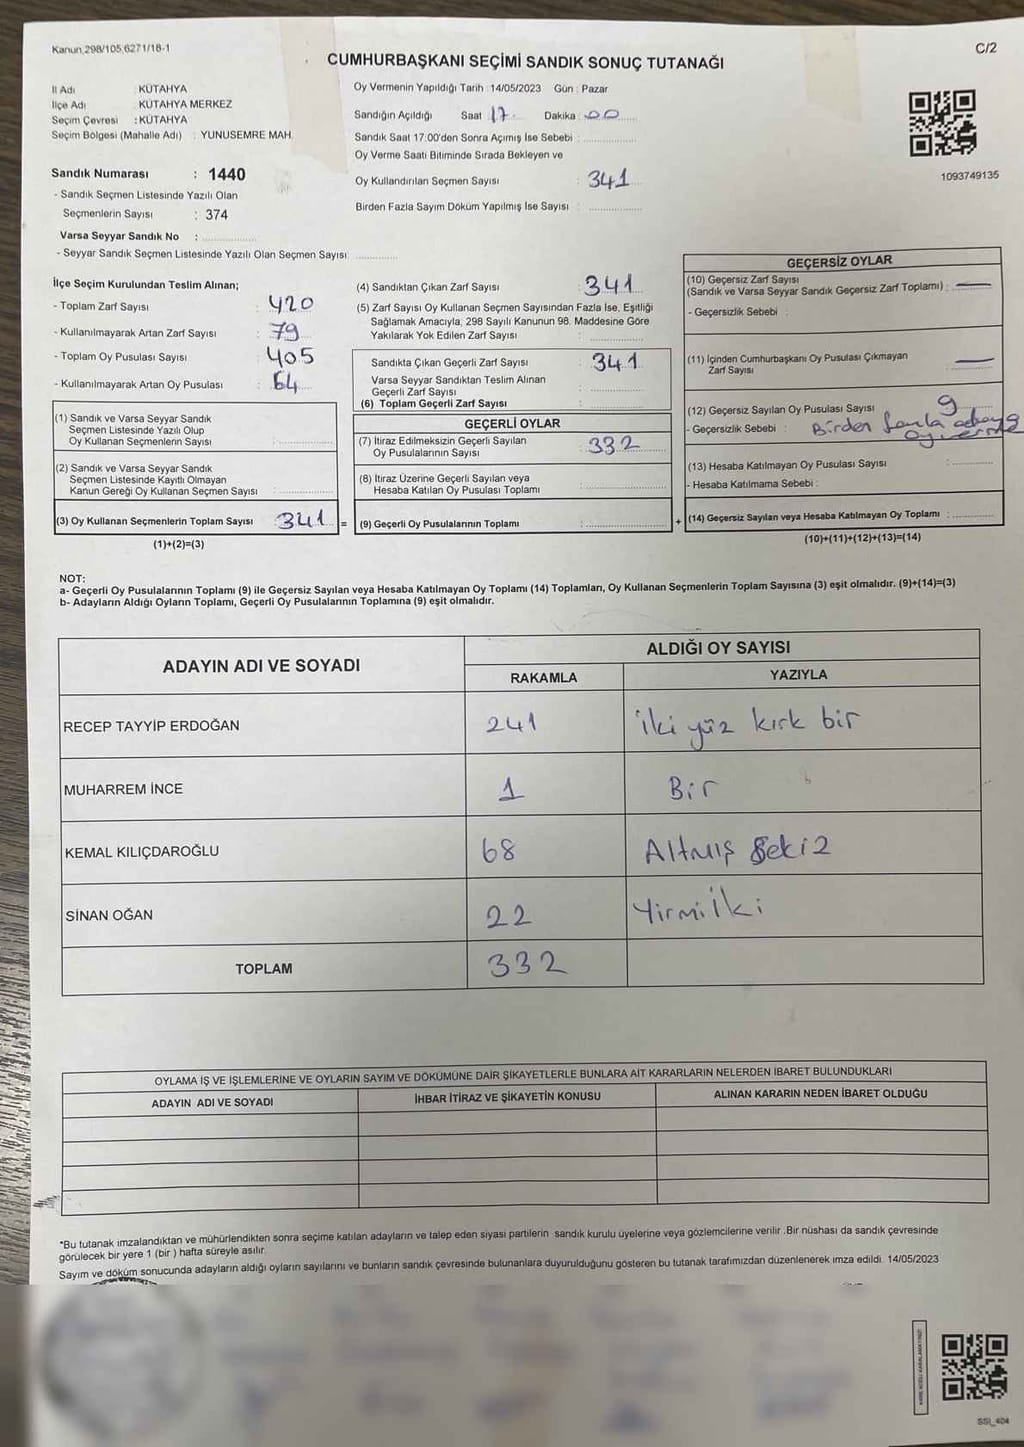 Kanun 298/105,6271/18-1
C/2
CUMHURBAŞKANI SEÇİMİ SANDIK SONUÇ TUTANAĞI
İl Adı : KÜTAHYA
İlçe Adı : KÜTAHYA MERKEZ
Seçim Çevresi : KÜTAHYA
Seçim Bölgesi (Mahalle Adı) : YUNUSEMRE MAH.
Sandık Numarası : 1440
- Sandık Seçmen Listesinde Yazılı Olan
Seçmenlerin Sayısı : 374
Varsa Seyyar Sandık No :
- Seyyar Sandık Seçmen Listesinde Yazılı Olan Seçmen Sayısı
Oy Vermenin Yapıldığı Tarih : 14/05/2023 Gün : Pazar
Sandığın Açıldığı Saat 17 Dakika : 00
Sandık Saat 17:00'den Sonra Açımış İse Sebebi :
Oy Verme Saati Bitiminde Sırada Bekleyen ve
Oy Kullandırılan Seçmen Sayısı : 341
Birden Fazla Sayım Döküm Yapılmış İse Sayısı :
1093749135
İlçe Seçim Kurulundan Teslim Alınan;
- Toplam Zarf Sayısı : 420
- Kullanılmayarak Artan Zarf Sayısı : 79
- Toplam Oy Pusulası Sayısı : 405
- Kullanılmayarak Artan Oy Pusulası : 64
(1) Sandık ve Varsa Seyyar Sandık
Seçmen Listesinde Yazılı Olup
Oy Kullanan Seçmenlerin Sayısı :
(2) Sandık ve Varsa Seyyar Sandık
Seçmen Listesinde Kayıtlı Olmayan
Kanun Gereği Oy Kullanan Seçmen Sayısı :
(3) Oy Kullanan Seçmenlerin Toplam Sayısı : 341 =
(1)+(2)=(3)
(4) Sandıktan Çıkan Zarf Sayısı : 341
(5) Zarf Sayısı Oy Kullanan Seçmen Sayısından Fazla İse, Eşitliği
Sağlamak Amacıyla, 298 Sayılı Kanunun 98. Maddesine Göre
Yakılarak Yok Edilen Zarf Sayısı :
Sandıkta Çıkan Geçerli Zarf Sayısı : 341
Varsa Seyyar Sandıktan Teslim Alınan
Geçerli Zarf Sayısı :
(6) Toplam Geçerli Zarf Sayısı :
GEÇERLİ OYLAR
(7) İtiraz Edilmeksizin Geçerli Sayılan
Oy Pusulalarının Sayısı : 332
(8) İtiraz Üzerine Geçerli Sayılan veya
Hesaba Katılan Oy Pusulası Toplamı :
(9) Geçerli Oy Pusulalarının Toplamı : +
GEÇERSİZ OYLAR
(10) Geçersiz Zarf Sayısı
(Sandık ve Varsa Seyyar Sandık Geçersiz Zarf Toplamı) : —
- Geçersizlik Sebebi :
(11) İçinden Cumhurbaşkanı Oy Pusulası Çıkmayan
Zarf Sayısı : —
(12) Geçersiz Sayılan Oy Pusulası Sayısı : 9
- Geçersizlik Sebebi : Birden fazla adaya
oy verme
(13) Hesaba Katılmayan Oy Pusulası Sayısı :
- Hesaba Katılmama Sebebi :
(14) Geçersiz Sayılan veya Hesaba Katılmayan Oy Toplamı :
(10)+(11)+(12)+(13)=(14)
NOT:
a- Geçerli Oy Pusulalarının Toplamı (9) ile Geçersiz Sayılan veya Hesaba Katılmayan Oy Toplamı (14) Toplamları, Oy Kullanan Seçmenlerin Toplam Sayısına (3) eşit olmalıdır. (9)+(14)=(3)
b- Adayların Aldığı Oyların Toplamı, Geçerli Oy Pusulalarının Toplamına (9) eşit olmalıdır.
ADAYIN ADI VE SOYADI
ALDIĞI OY SAYISI
RAKAMLA YAZIYLA
RECEP TAYYİP ERDOĞAN 241 İki yüz kırk bir
MUHARREM İNCE 1 Bir
KEMAL KILIÇDAROĞLU 68 Altmış Sekiz
SİNAN OĞAN 22 Yirmi İki
TOPLAM 332
OYLAMA İŞ VE İŞLEMLERİNE VE OYLARIN SAYIM VE DÖKÜMÜNE DAİR ŞİKAYETLERLE BUNLARA AİT KARARLARIN NELERDEN İBARET BULUNDUKLARI
ADAYIN ADI VE SOYADI İHBAR İTİRAZ VE ŞİKAYETİN KONUSU ALINAN KARARIN NEDEN İBARET OLDUĞU
*Bu tutanak imzalandıktan ve mühürlendikten sonra seçime katılan adayların ve talep eden siyasi partilerin sandık kurulu üyelerine veya gözlemcilerine verilir .Bir nüshası da sandık çevresinde
görülecek bir yere 1 (bir ) hafta süreyle asılır.
Sayım ve döküm sonucunda adayların aldığı oyların sayılarını ve bunların sandık çevresinde bulunanlara duyurulduğunu gösteren bu tutanak tarafımızdan düzenlenerek imza edildi. 14/05/2023
KARE KODU KARALAMAYINIZ!
SSI_404